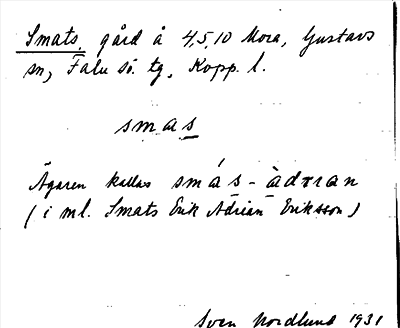 Smats, gård å 4,5,10 Mora, Gustavs
sn, Falu sö. tg, Kopp. l.
smas
Ägaren kallas smás-àdrıan
(i ml. Smats Erik Adrian Eriksson)
Sven Nordlund 1931